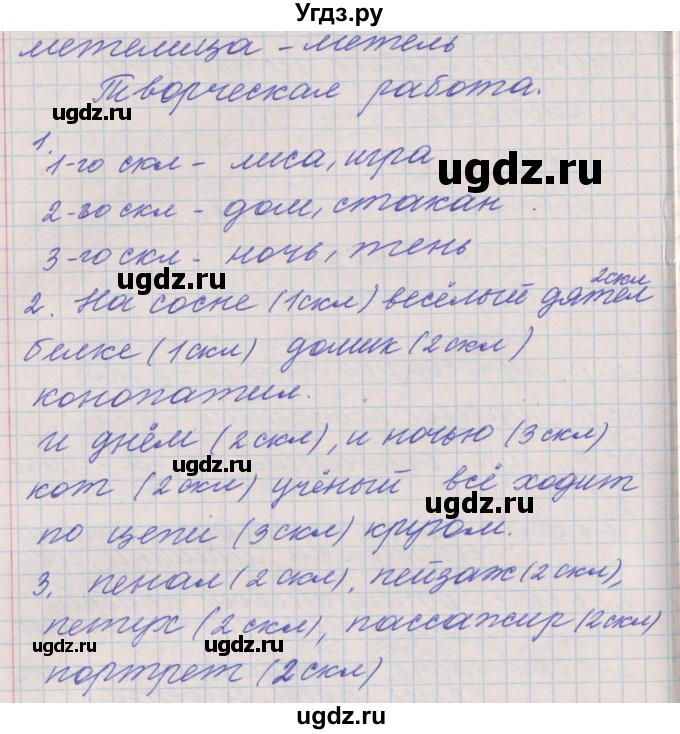 Угдз.ру
метелица - метель
Творческая работа.
1.
1-го скл - лиса, игра
ugdz.ru
2-го скл - дом, стакан
ugdz.ru
3-го скл - ночь, тень
ugdz.ru
2скл
2. На сосне (1скл) весёлый дятел
белке (1скл) домик (2скл)
ugdz.ru
конопатил.
и днём (2скл), и ночью (3скл)
ugdz.ru
кот (2скл) учёный всё ходит
ugdz.ru
по цепи (3скл) кругом.
3. пенал (2скл), пейзаж (2скл),
петух (2скл), пассажир (2скл)
ugdz.ru
ugdz.ru
портрет (2скл)
ugdz.ru